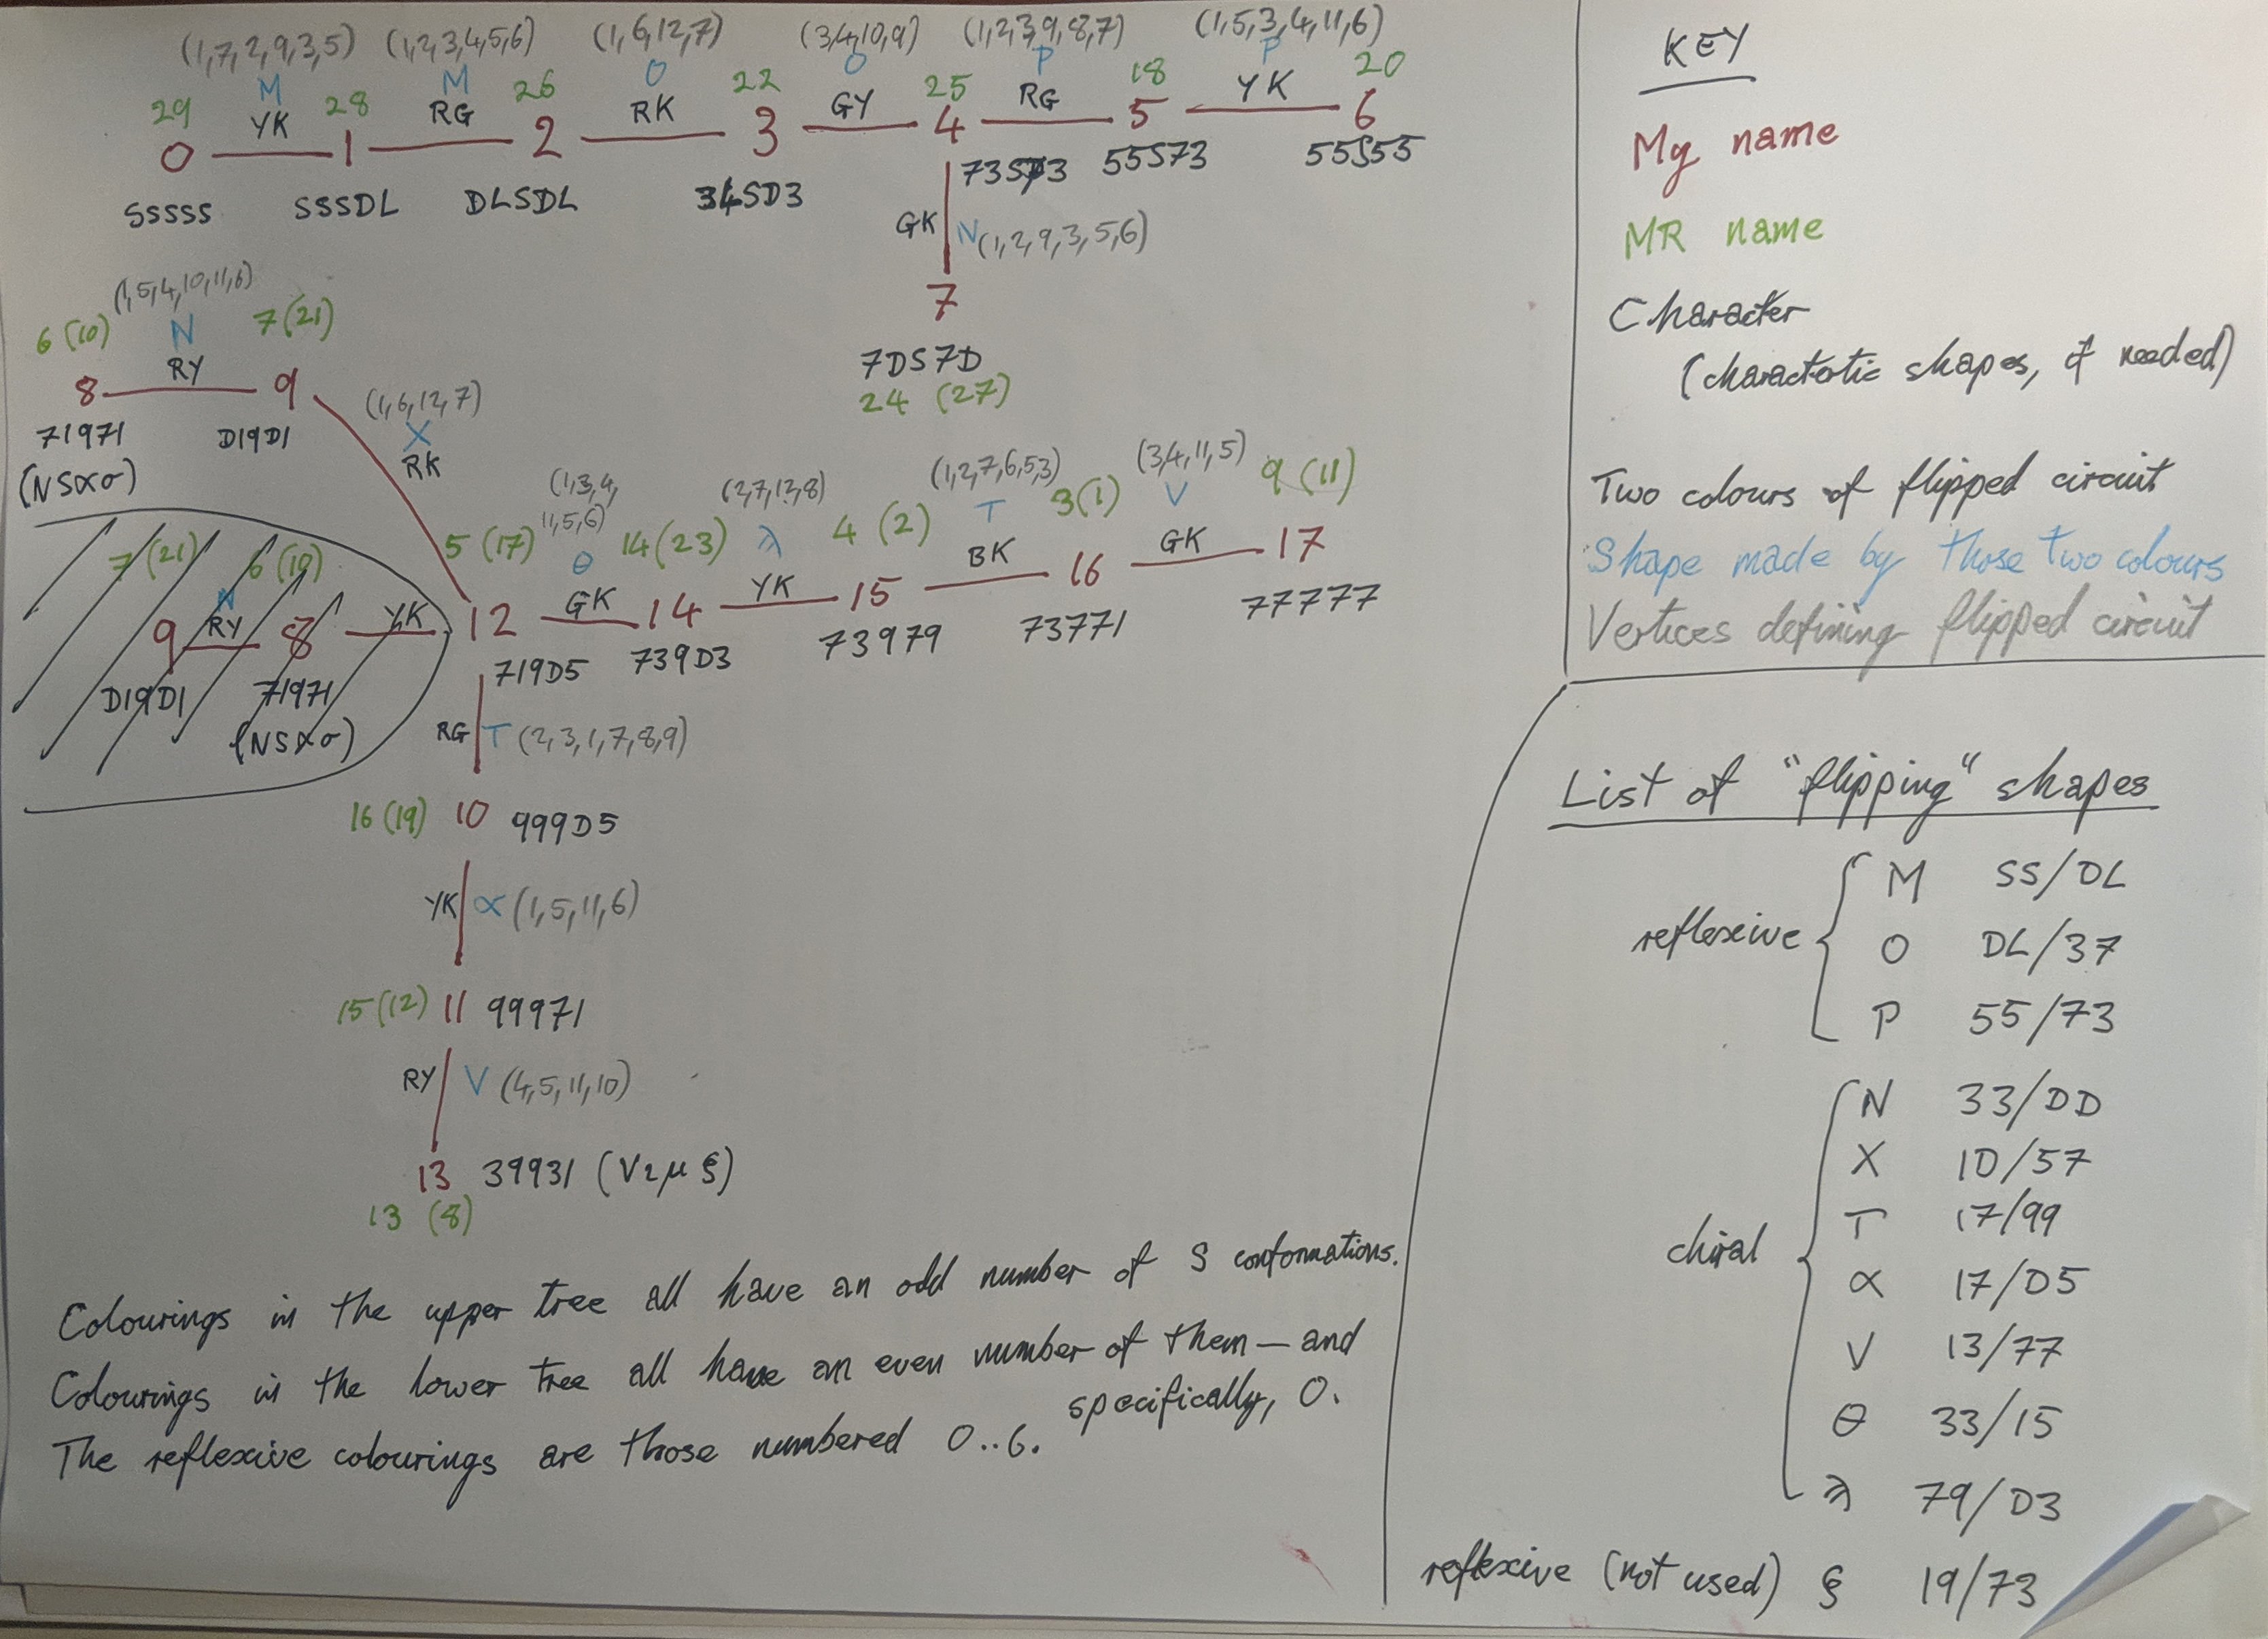 (1,7,2,9,3,5) (1,2,3,4,5,6) (1,6,12,7) (3,4,10,9) (1,2,3,9,8,7) (1,5,3,4,11,6)
M M O O P P
29 YK 28 RG 26 RK 22 GY 25 RG 18 YK 20
0 1 2 3 4 5 6
SSSSS SSSDL DLSDL 34SD3 73S73 55S73 55S55
GK N (1,2,9,3,5,6)
7
7DS7D
24 (27)
(1,5,4,10,11,6)
6 (10) N 7 (21)
RY
8 9
71971 D19D1
(NSασ)
(1,6,12,7)
X
RK
7 (21) N 6 (10)
9 RY 8 YK
D19D1 71971
(NSασ)
(1,3,4,
11,5,6) (2,7,13,8) (1,2,7,6,5,3) (3,4,11,5)
5 (17) θ 14 (23) λ 4 (2) T 3 (1) V 9 (11)
12 GK 14 YK 15 BK 16 GK 17
719D5 739D3 73979 73771 77777
RG T (2,3,1,7,8,9)
16 (19) 10 999D5
YK α (1,5,11,6)
15 (12) 11 99971
RY V (4,5,11,10)
13 39931
13 (8)
Colourings in the upper tree all have an odd number of S conformations.
Colourings in the lower tree all have an even number of them — and
specifically, 0.
The reflexive colourings are those numbered 0..6.
KEY
My name
MR name
Character
(charactotic shapes, if needed)
Two colours of flipped circuit
Shape made by those two colours
Vertices defining flipped circuit
List of "flipping" shapes
reflexive
M SS/DL
O DL/37
P 55/73
chiral
N 33/DD
X 1D/57
T 17/99
α 17/D5
V 13/77
θ 33/15
λ 79/D3
reflexive (not used) § 19/73